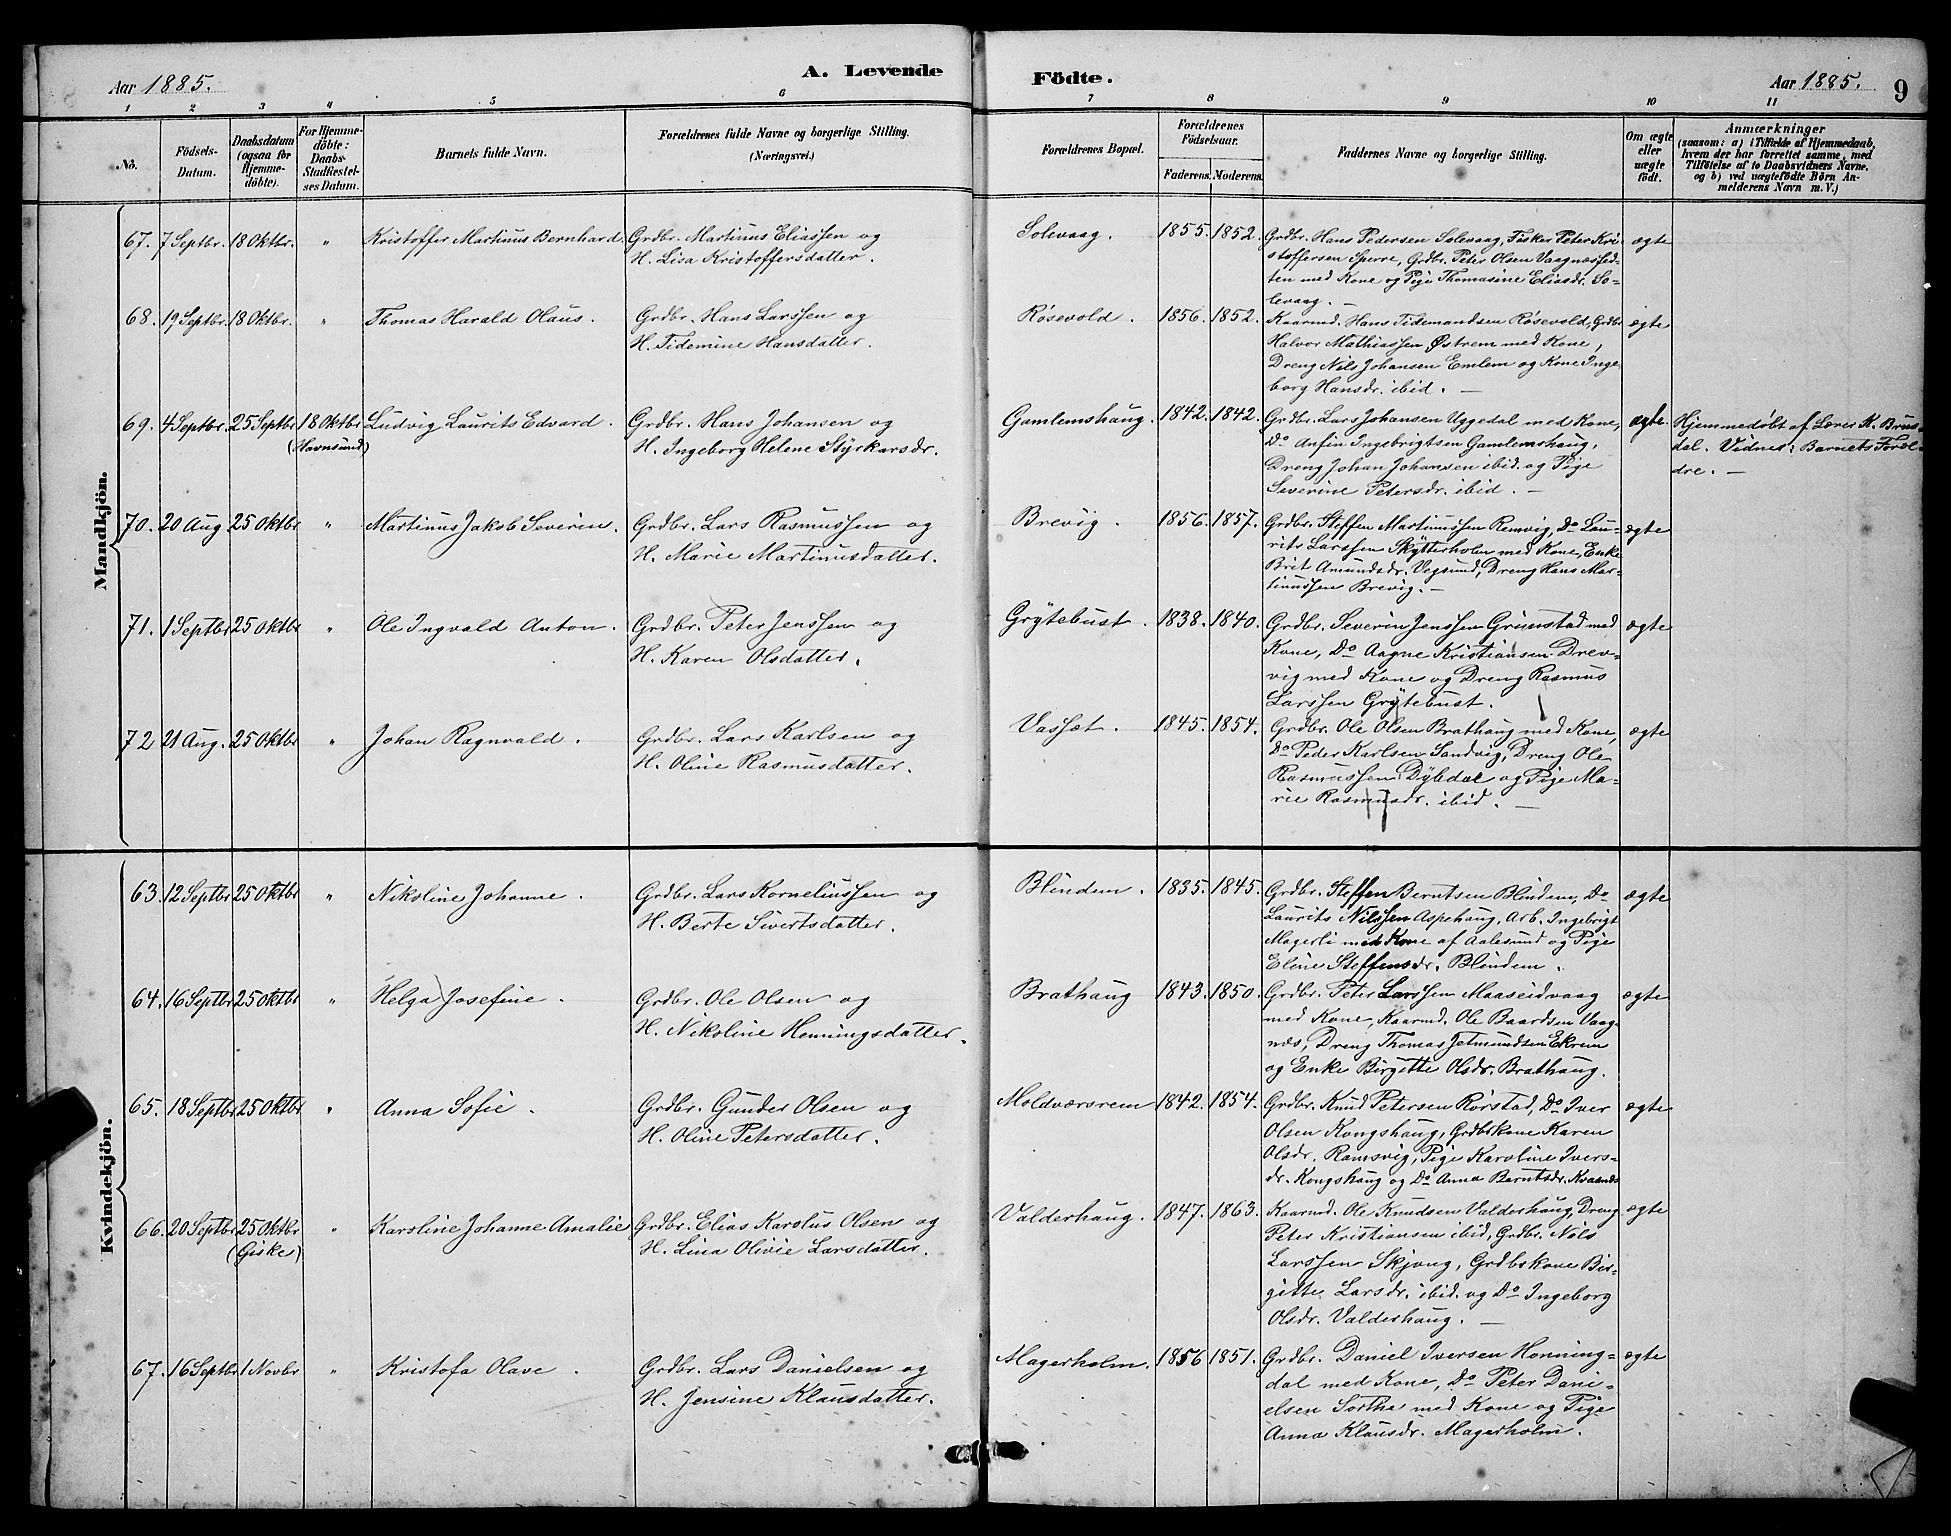 Aar 1885.
A. Levende
Födte.
Aar 1885.
9
1 2 3 4 5 6 7 8 9 10 11
No.
Födsels-Datum.
Daabsdatum (ogsaa for Hjemme-döbte).
For Hjemme-döbte: Daabs-Stadfæstel-ses Datum.
Barnets fulde Navn.
Forældrenes fulde Navne og borgerlige Stilling. (Næringsvei.)
Forældrenes Bopæl.
Forældrenes Födselsaar.
Faderens. Moderens.
Faddernes Navne og borgerlige Stilling.
Om ægte eller uægte födt.
Anmærkninger
(saasom: a) i Tilfælde af Hjemmedaab,
hvem der har forrettet samme, med
Tilföielse af to Daabsvidners Navne,
og b) ved uægtefödte Börn An-
melderens Navn m. V.)
Mandkjön.
67. 7 Septbr. 18 Oktbr. " Kristoffer Martinus Bernhard. Grdbr. Martinus Eliassen og
H. Lisa Kristoffersdatter.
Solevaag. 1855. 1852. Grdbr. Hans Pedersen Solevaag, Fisker Peter Kri-
stoffersen Sperre, Grdbr. Peter Olsen Vaagnæssed-
ten med Kone og Pige Thomasine Eliasdr. So-
levaag. —
ægte
68. 19 Septbr. 18 Oktbr. " Thomas Harald Olaus. Grdbr. Hans Larssen og
H. Tidemine Hansdatter.
Røsevold. 1856. 1852. Kaarmd. Hans Tidemandsen Røsevold, Grdbr.
Halvor Mathiassen Østrem med Kone,
Dreng Nils Johansen Emlem og Kone Inge-
borg Hansdr. ibid. —
ægte
69. 4 Septbr. 25 Septbr 18 Oktbr (Havnsund) Ludvig Laurits Edvard. Grdbr. Hans Johansen og
H. Ingeborg Helene Styrkarsdr.
Gamlemshaug. 1842. 1842. Grdbr. Lars Johansen Uggedal med Kone,
Do Anfin Ingebrigtsen Gamlemshaug,
Dreng Johan Johansen ibid. og Pige
Severine Petersdr. ibid. —
ægte. Hjemmedøbt af Lærer K. Brus-
dal. Vidner: Barnets Foræl-
dre. —
70. 20 Aug 25 Oktbr " Martinus Jakob Severin. Grdbr. Lars Rasmussen og
H. Marie Martinusdatter.
Brevig. 1856. 1857. Grdbr. Steffen Martinussen Remvig, Do Lau-
rits Larssen Skytterholm med Kone, Enke
Brit Amundsdr. Vegsund, Dreng Hans Mar-
tinussen Brevig. —
ægte
71. 1 Septbr 25 Oktbr " Ole Ingvald Anton. Grdbr. Peter Jenssen og
H. Karen Olsdatter.
Grytebust. 1838. 1840. Grdbr. Severin Jenssen Grimstad med
Kone, Do Aagne Kristiansen Drev-
vig med Kone og Dreng Rasmus
Larssen Grytebust.
ægte
72 21 Aug. 25 Oktbr " Johan Ragnvald. Grdbr. Lars Karlsen og
H. Oline Rasmusdatter.
Vassæt. 1845. 1854. Grdbr. Ole Olsen Brathaug med Kone,
Do Peder Karlsen Sandvig, Dreng Ole
Rasmussen Dybdal og Pige Ma-
rie Rasmusdr. ibid. —
ægte
Kvindekjön.
63. 12 Septbr 25 Oktbr " Nikoline Johanne. Grdbr. Lars Korneliussen og
H. Berte Sivertsdatter.
Blindem. 1835. 1845. Grdbr. Steffen Berntsen Blindem, Do
Laurits Nilssen Aspehaug, Arb. Ingebrigt
Magerli med Kone af Aalesund og Pige
Eline Steffensdr. Blindem.
ægte
64. 16 Septbr 25 Oktbr " Helga Josefine. Grdbr. Ole Olsen og
H. Nikoline Henningsdatter.
Brathaug 1843. 1850. Grdbr. Peter Larssen Maaseidvaag
med Kone, Kaarmd. Ole Baardsen Vaag-
næs, Dreng Thomas Jetmundsen Ekrem
og Enke Birgitte Olsdr. Brathaug.
ægte
65. 18 Septbr 25 Oktbr " Anna Sofie. Grdbr. Gunder Olsen og
H. Oline Petersdatter.
Moldværsrem 1842. 1854. Grdbr. Knud Petersen Rørstad, Do Iver
Olsen Kongshaug, Grdbrkone Karen
Olsdr. Ramsvig, Pige Karoline Ivers-
dr. Kongshaug og Do Anna Berntsdr.
ægte
66. 20 Septbr 25 Oktbr (Giske) " Karoline Johanne Amalie Grdbr. Elias Karolus Olsen og
H. Lina Olivie Larsdatter.
Valderhaug. 1847. 1863. Kaarmd. Ole Knudsen Valderhaug, Dreng
Peter Kristiansen ibid, Grdbr. Nils
Larssen Skjong, Grdbrkone Bir-
gitte Larsdr. ibid. og Do Ingeborg
Olsdr. Valderhaug. —
ægte
67. 16 Septbr 1 Novbr " Kristofa Olave. Grdbr. Lars Danielsen og
H. Jensine Klausdatter.
Magerholm. 1856 1851. Grdbr. Daniel Iversen Honning-
dal med Kone, Do Peter Dani-
elsen Sorthe med Kone og Pige
Anna Klausdr. Magerholm.
ægte